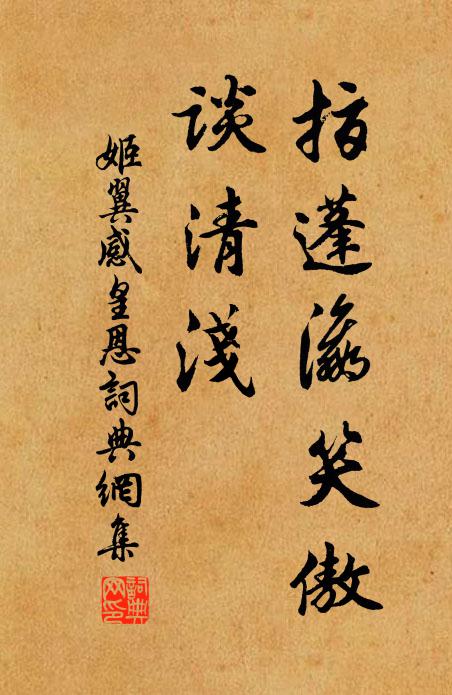 指蓬瀛笑傲
談清淺
姬翼感皇恩詞典網集
詞典网印